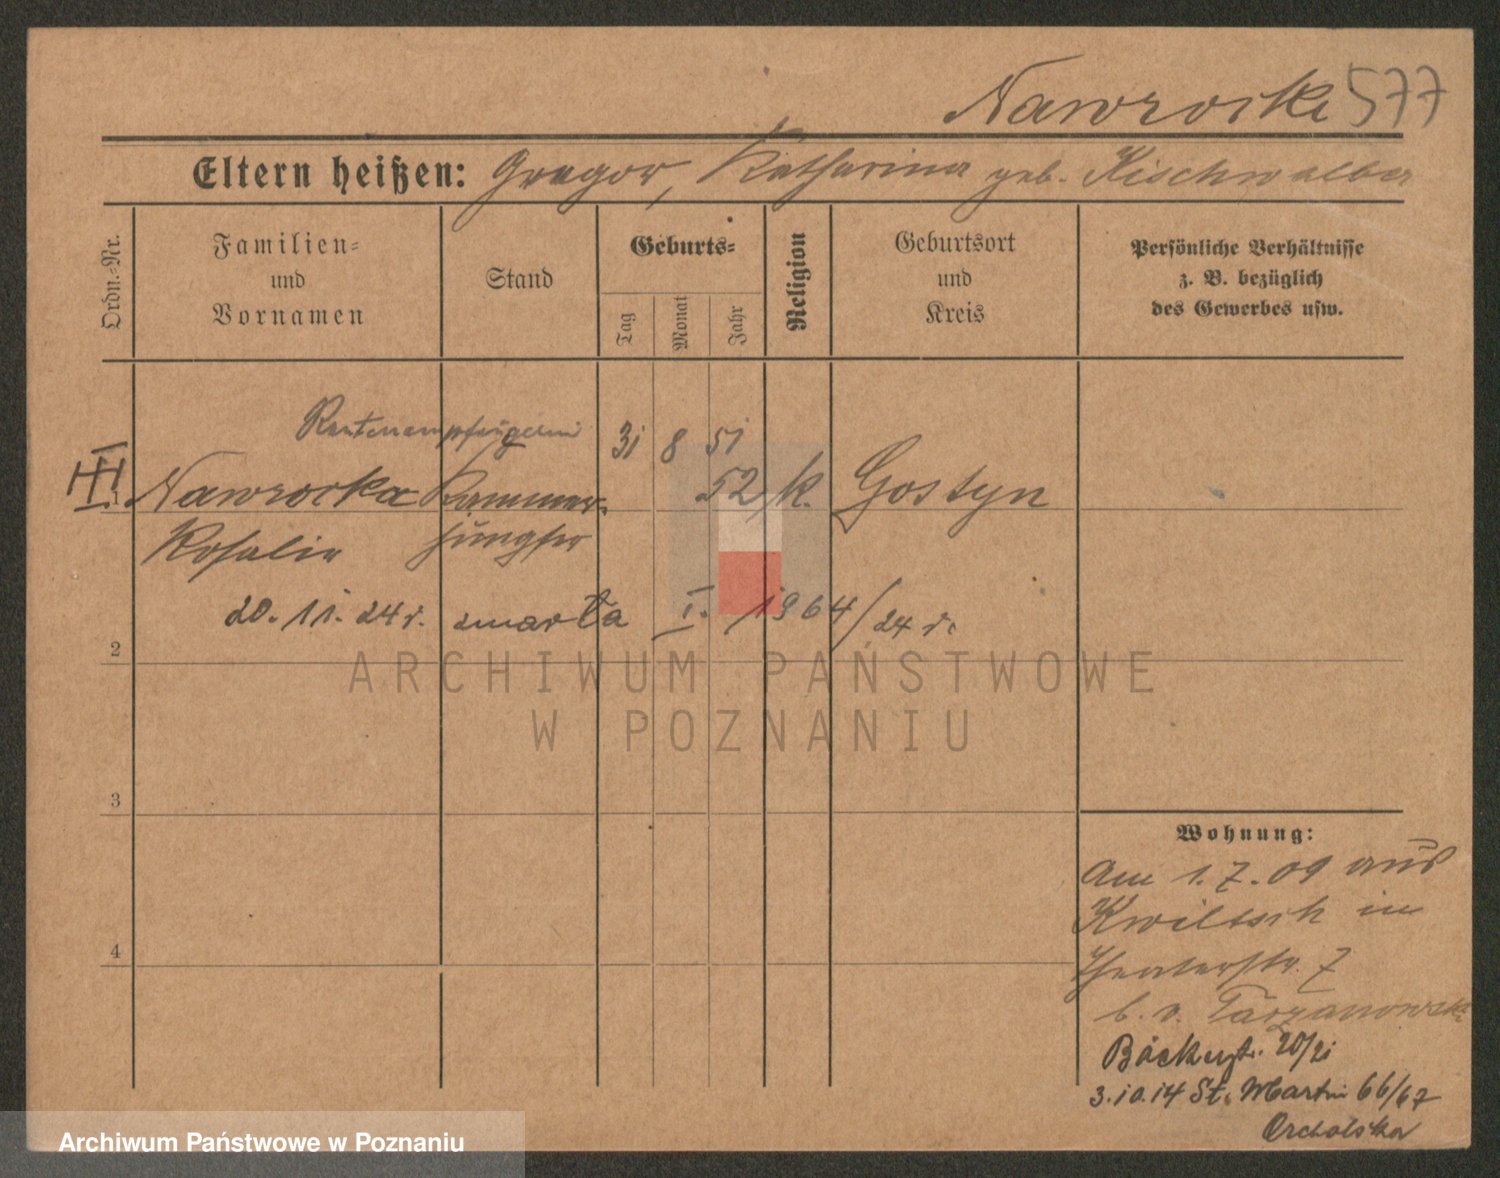 Nawrocki 577
Eltern heißen: Gregor, Katharina geb. Kischwalber
Ordn.-Nr.
Familien-
und
Vornamen
Stand
Geburts-
Tag
Monat
Jahr
Religion
Geburtsort
und
Kreis
Persönliche Verhältnisse
z. B. bezüglich
des Gewerbes usw.
Rentenempfängerin 31 8 51
III 1 Nawrocka Kammer- 52 k. Gostyn
Rosalie jungfer
20. 11. 24 r. zmarła I. 1964/24 r.
2
3
4
ARCHIWUM PAŃSTWOWE
W POZNANIU
Wohnung:
Am 1.7.09 aus
Kwiltsch in
Theaterstr. 7
b. v.
Bäckerstr. 20/21
3.10.14 St. Martin 66/67
Archiwum Państwowe w Poznaniu